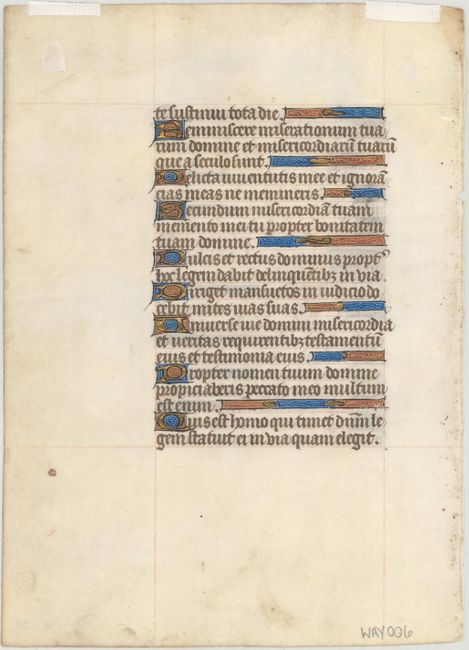 te sustinui tota die.
Reminiscere miserationum tua
rum domine et misericordiarū tuarū
que a seculo sunt.
Delicta iuventutis mee et ignorā
cias meas ne memineris.
Secundum misericordiā tuam
memento mei tu propter bonitatem
tuam domine.
Dulcis et rectus dominus propt'
hoc legem dabit delinquentibꝫ in via
Diriget mansuetos in iudicio do
cebit mites vias suas.
Universe vie domini misericordia
et veritas requirentibꝫ testamentū
eius et testimonia eius.
Propter nomen tuum domine
propiciaberis peccato meo multum
est enim.
Quis est homo qui timet dn̄m le
gem statuit ei in via quam elegit.
WAY006